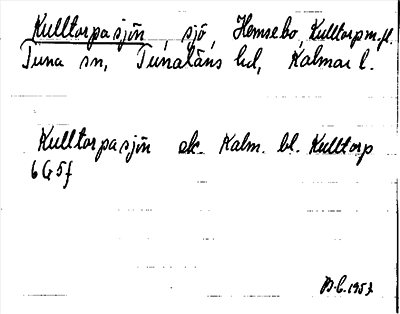 Kulltorpasjön, sjö, Hemsebo, Kulltorp m.fl.
Tuna sn, Tunaläns hd, Kalmar l.
Kulltorpasjön ek. Kalm. bl. Kulltorp
6G5f
1957